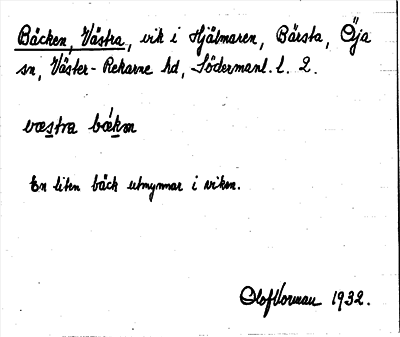 Bäcken, Västra, vik i Hjälmaren, Bärsta, Öja
sn, Väster-Rekarne hd, Södermanl. l. 2.
væstra bækən
En liten bäck utmynnar i viken.
Olof Norman 1932.